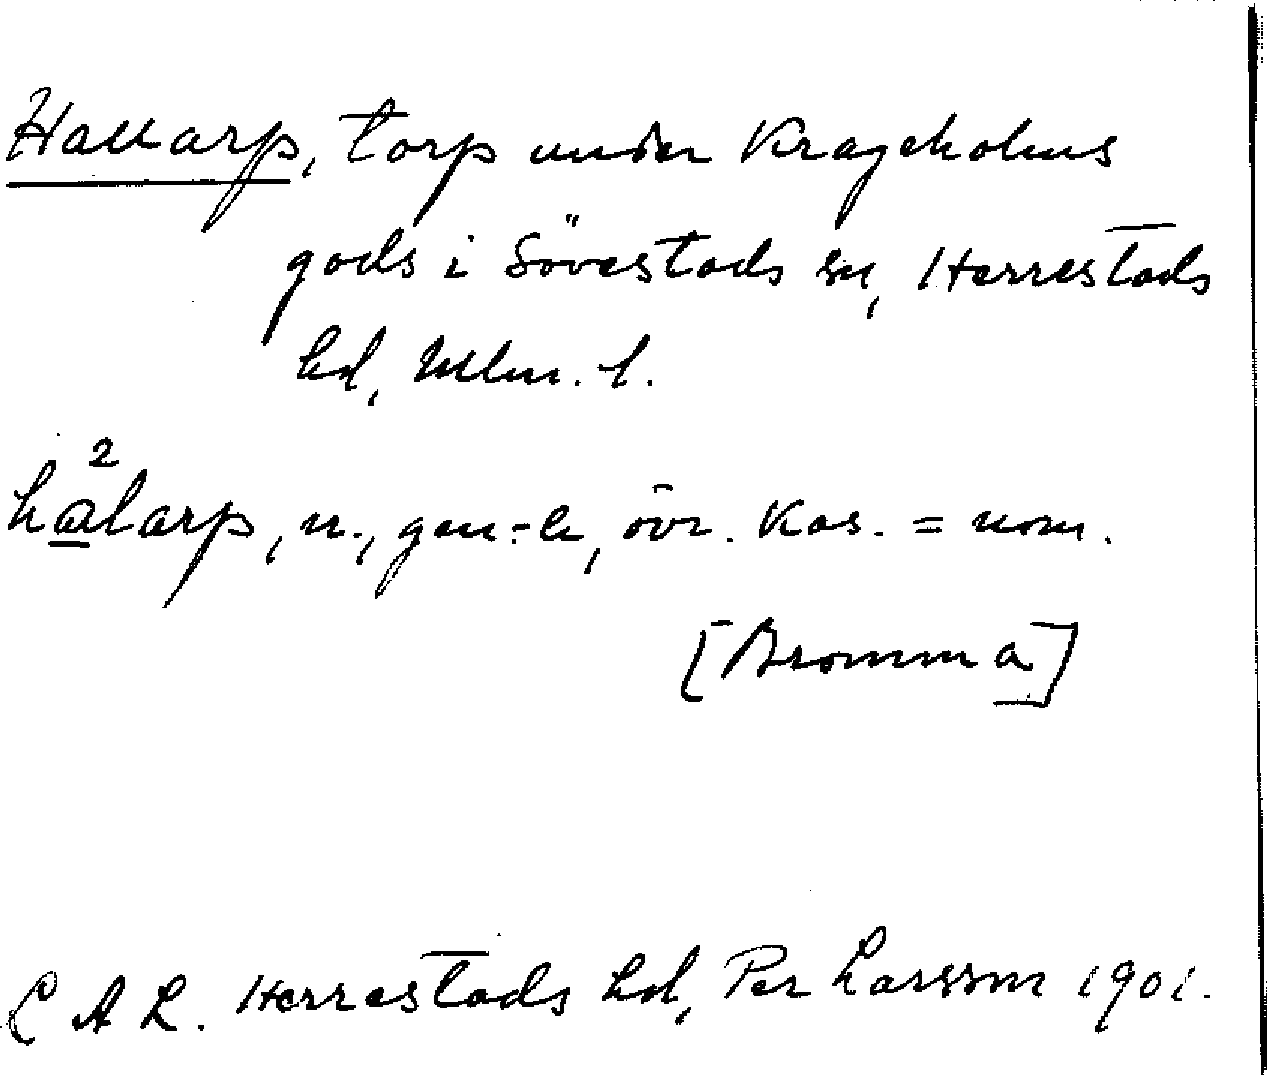 Hallarp, torp under Krageholms
gods i Sövestads sn, Herrestads
hd, Mlm. l.
ha²larp, n., gen -a, övr. kas. = nom.
[Bromma]
L A L. Herrestads hd, Per Larsson 1901.